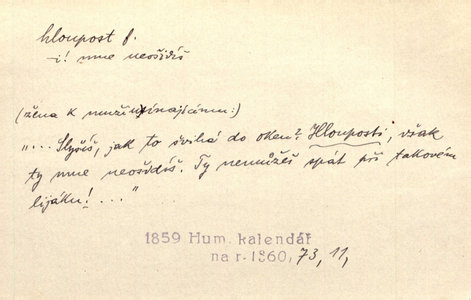 hloupost f.
-i! mne neošidíš
(žena k muži usínajícímu:)
"... Slyšíš, jak to švihá do oken? Hlouposti, však
ty mne neošidíš. Ty nemůžeš spát při takovém
lijáku! ..."
1859 Hum. kalendář
na r. 1860, 73, 11,